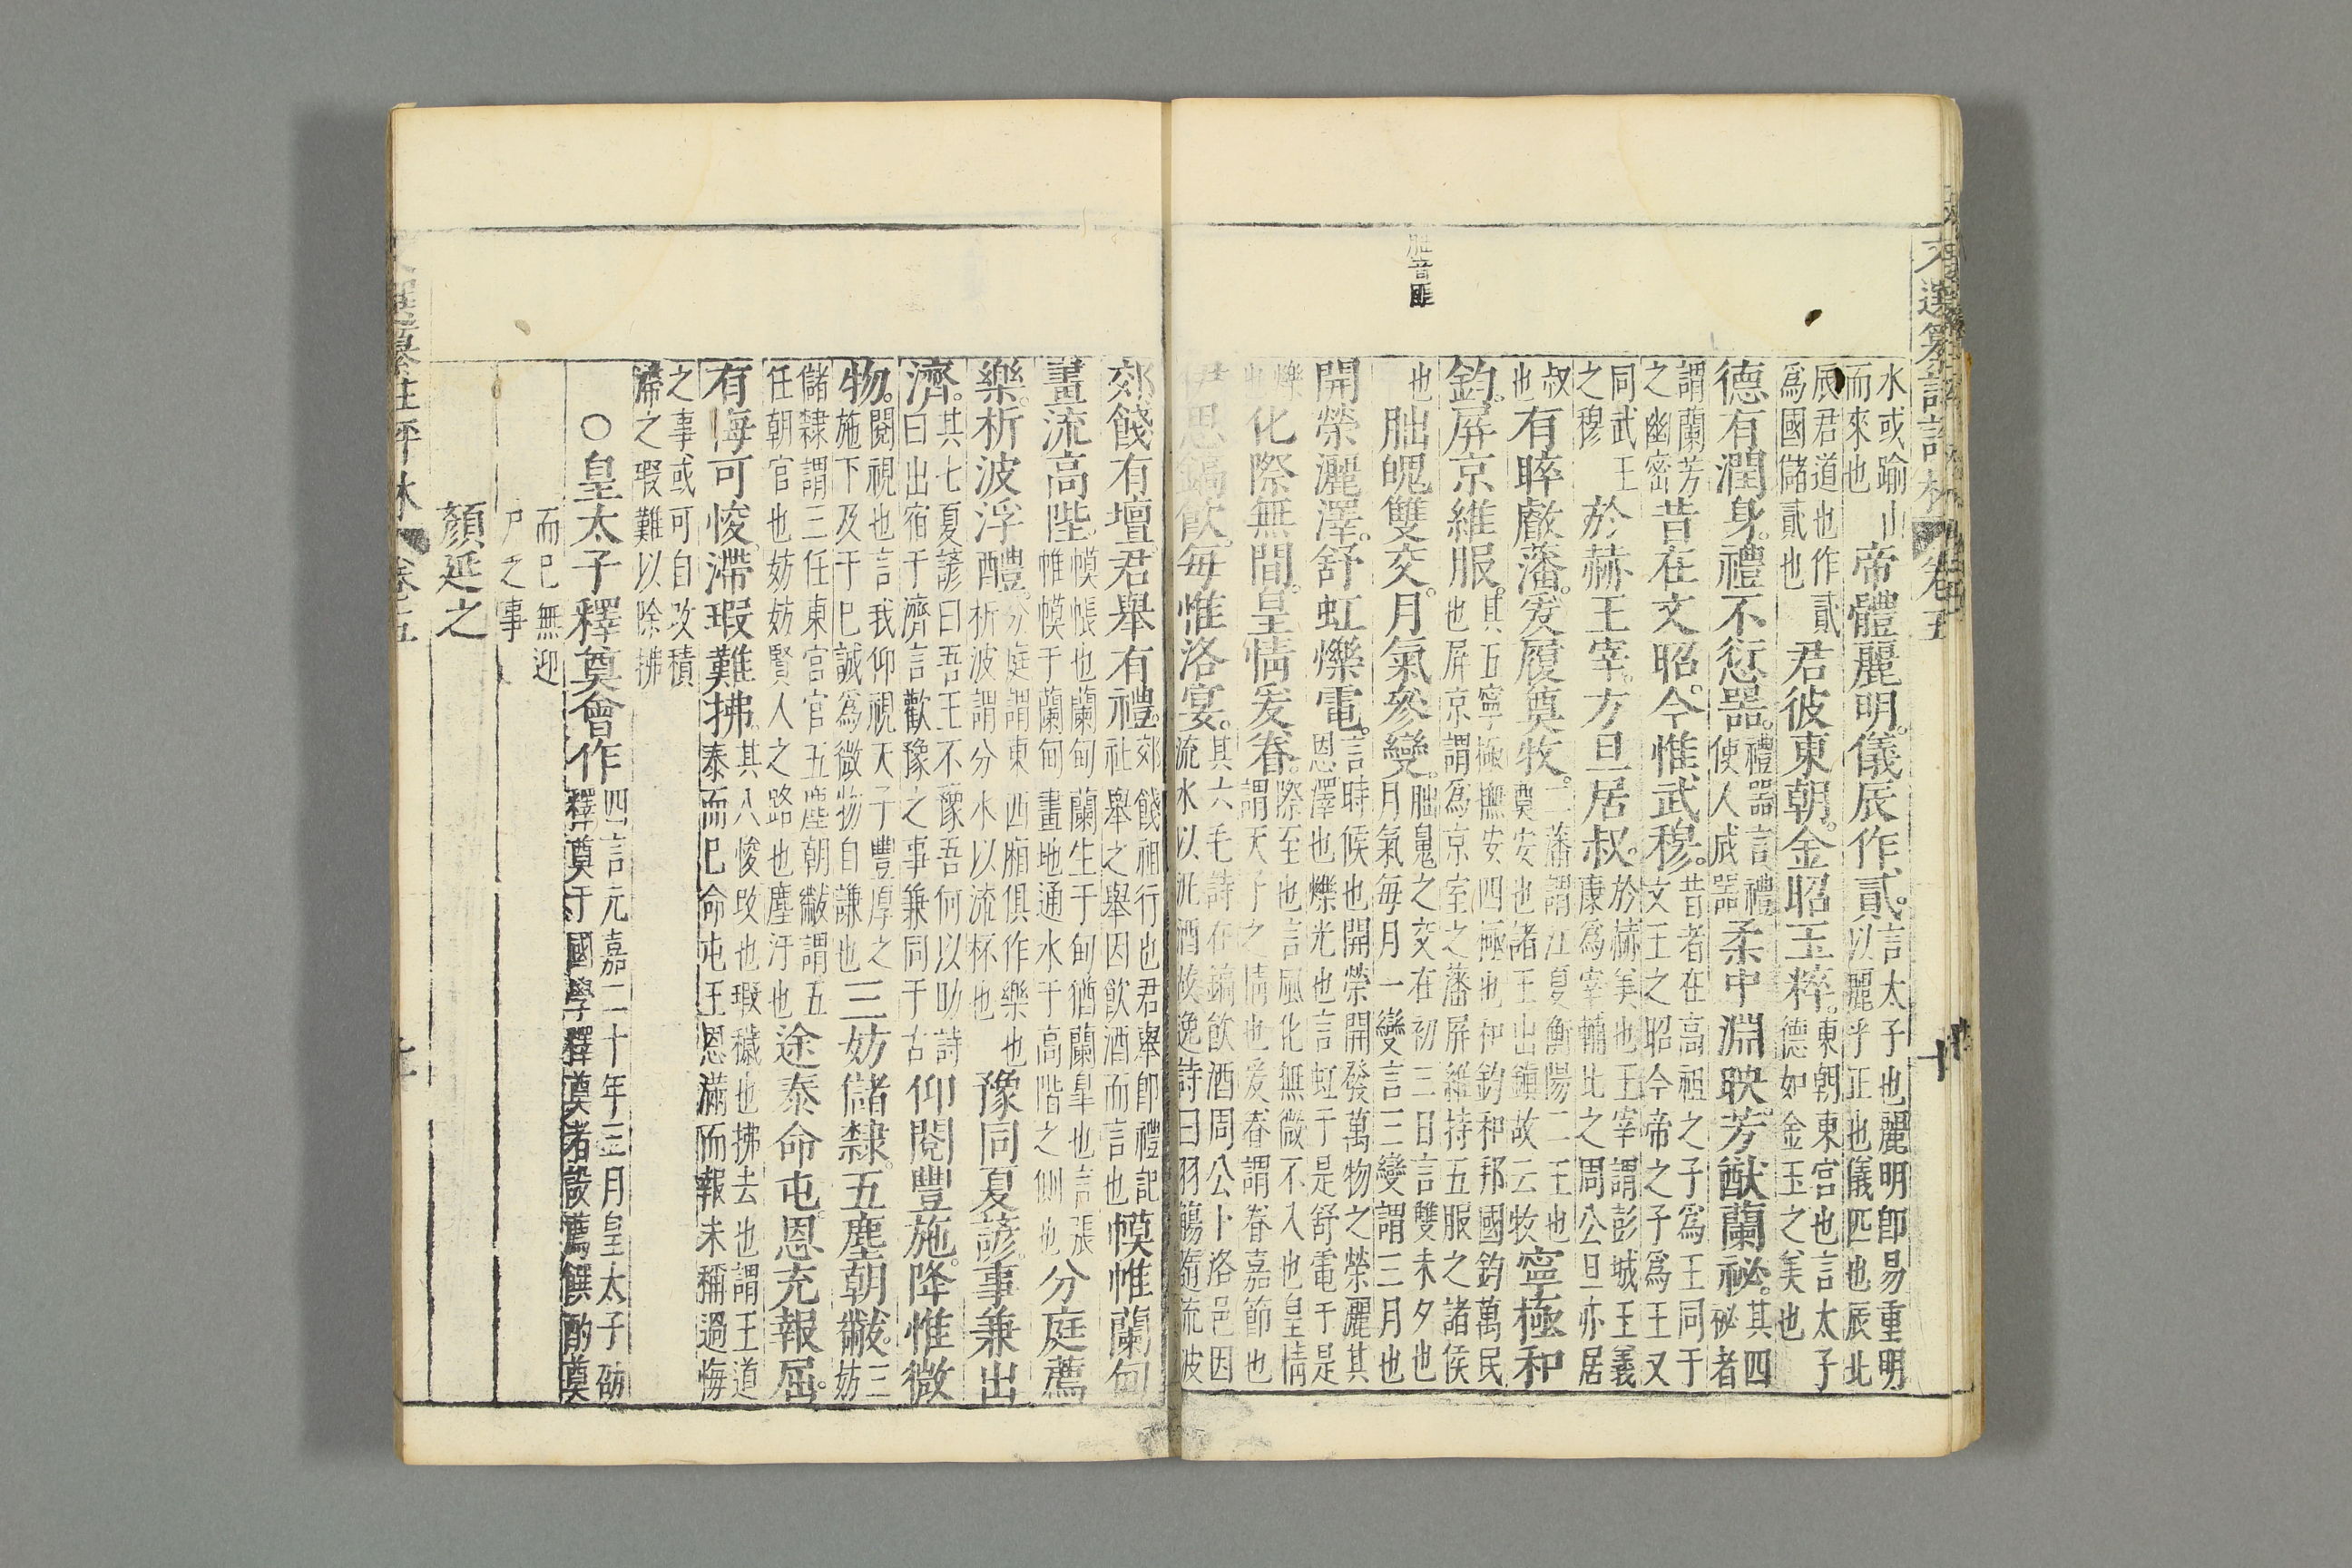 水或踰山
而來也
帝體麗明。儀辰作貳。
言太子也麗明即易重明
以麗乎正也儀匹也辰北
辰君道也作貳
爲國儲貳也
君彼東朝。金昭玉粹。
東朝東宮也言太子
德如金玉之美也
德有潤身。禮不愆器。
禮器言禮
使人成器
柔中淵映。芳猷蘭祕。
其四
祕者
謂蘭芳
之幽密
昔在文昭。今惟武穆。
昔者在高祖之子爲王同于
文王之昭今帝之子爲王又
同武王
之穆
於赫王宰。方旦居叔。
於赫美也王宰謂彭城王義
康爲宰輔比之周公旦亦居
叔
也
有睟叡藩。爰履奠牧。
二藩謂江夏衡陽二王也
奠安也諸王出鎮故云牧
寧極和
鈞。屏京維服。
其五寧極撫安四極也和鈞和邦國鈞萬民
也屏京謂爲京室之藩屏維持五服之諸侯
也
朏魄雙交。月氣參變。
朏魄之交在初三日言雙未夕也
月氣每月一變言三變謂三月也
開榮灑澤。舒虹爍電。
言時候也開榮開發萬物之榮灑其
恩澤也爍光也言虹于是舒電于是
爍
也
化際無間。皇情爰眷。
際至也言風化無微不入也皇情
謂天子之情也爰眷謂眷嘉節也
伊思鎬飮。每惟洛宴。
其六毛詩在鎬飮酒周公卜洛邑因
流水以泚酒故逸詩曰羽觴隨流波
郊餞有壇。君舉有禮。
郊餞祖行也君舉即禮記
社舉之舉因飮酒而言也
幙帷蘭甸
畫流高陛。
幙帳也蘭甸蘭生于甸猶蘭皐也言張
帷幙于蘭甸畫地通水于高階之側也
分庭薦
樂。析波浮醴。
分庭謂東西廂俱作樂也
析波謂分水以流杯也
豫同夏諺。事兼出
濟。
其七夏諺曰吾王不豫吾何以助詩
曰出宿于濟言歡豫之事兼同于古
仰閱豐施。降惟微
物。
閱視也言我仰視天子豐厚之
施下及于己誠爲微物自謙也
三妨儲隸。五塵朝黻。
三
妨
儲隸謂三任東宮官五塵朝黻謂五
任朝官也妨妨賢人之路也塵汙也
途泰命屯。恩充報屈。
有悔可悛。滯瑕難拂。
其八悛改也瑕穢也拂去也謂王道
泰而己命屯王恩滿而報未稱過悔
之事或可自改積
滯之瑕難以除拂
〇皇太子釋奠會作
四言元嘉二十年三月皇太子劭
釋奠于國學釋奠者設薦饌酌奠
而已無迎
尸之事
顏延之
朏音匪
卷五
十